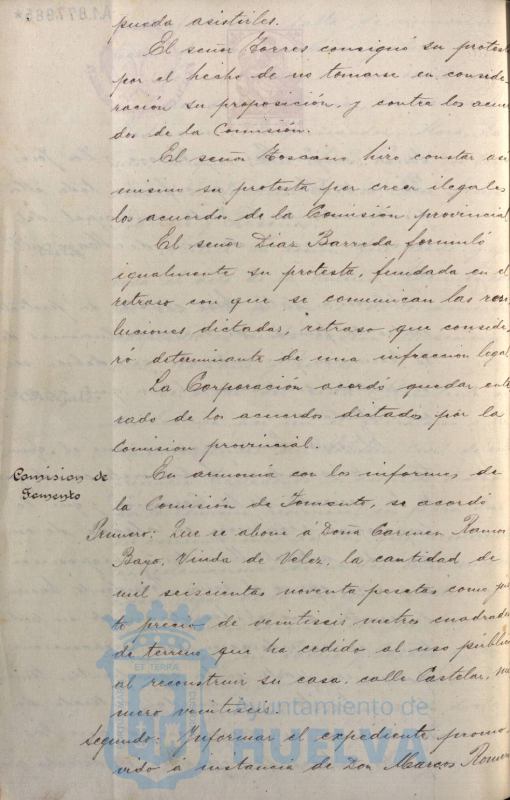 A1.877.985*
pueda asistirles.
El señor Torres consignó su protest
por el hecho de no tomarse en conside
ración su proposición, y contra los acuer
dos de la Comisión.
El señor Toscano, hizo constar asi
mismo su protesta por creer ilegales
los acuerdos de la Comisión provincial
El señor Diaz Barreda formuló
igualmente su protesta, fundada en el
retraso con que se comunican las reso
luciones dictadas, retraso que conside
ró determinante de una infracción legal
La Corporación acordó quedar ente
rado de los acuerdos dictados por la
Comision provincial.
Comision de
Fomento
En armonía con los informes de
la Comisión de Fomento, se acordó
Primero: Que se abone á Doña Carmen Ramos
Bayo, Viuda de Velez, la cantidad de
mil seiscientas noventa pesetas como jus
to precio de veintiseis metros cuadrado
de terreno que ha cedido al uso público
al reconstruir su casa, calle Castelar, nu
mero veintiseis.
Segundo: Informar el expediente promo
vido á instancia de Don Marcos Romero
ET TERRA
Ayuntamiento de
HUELVA